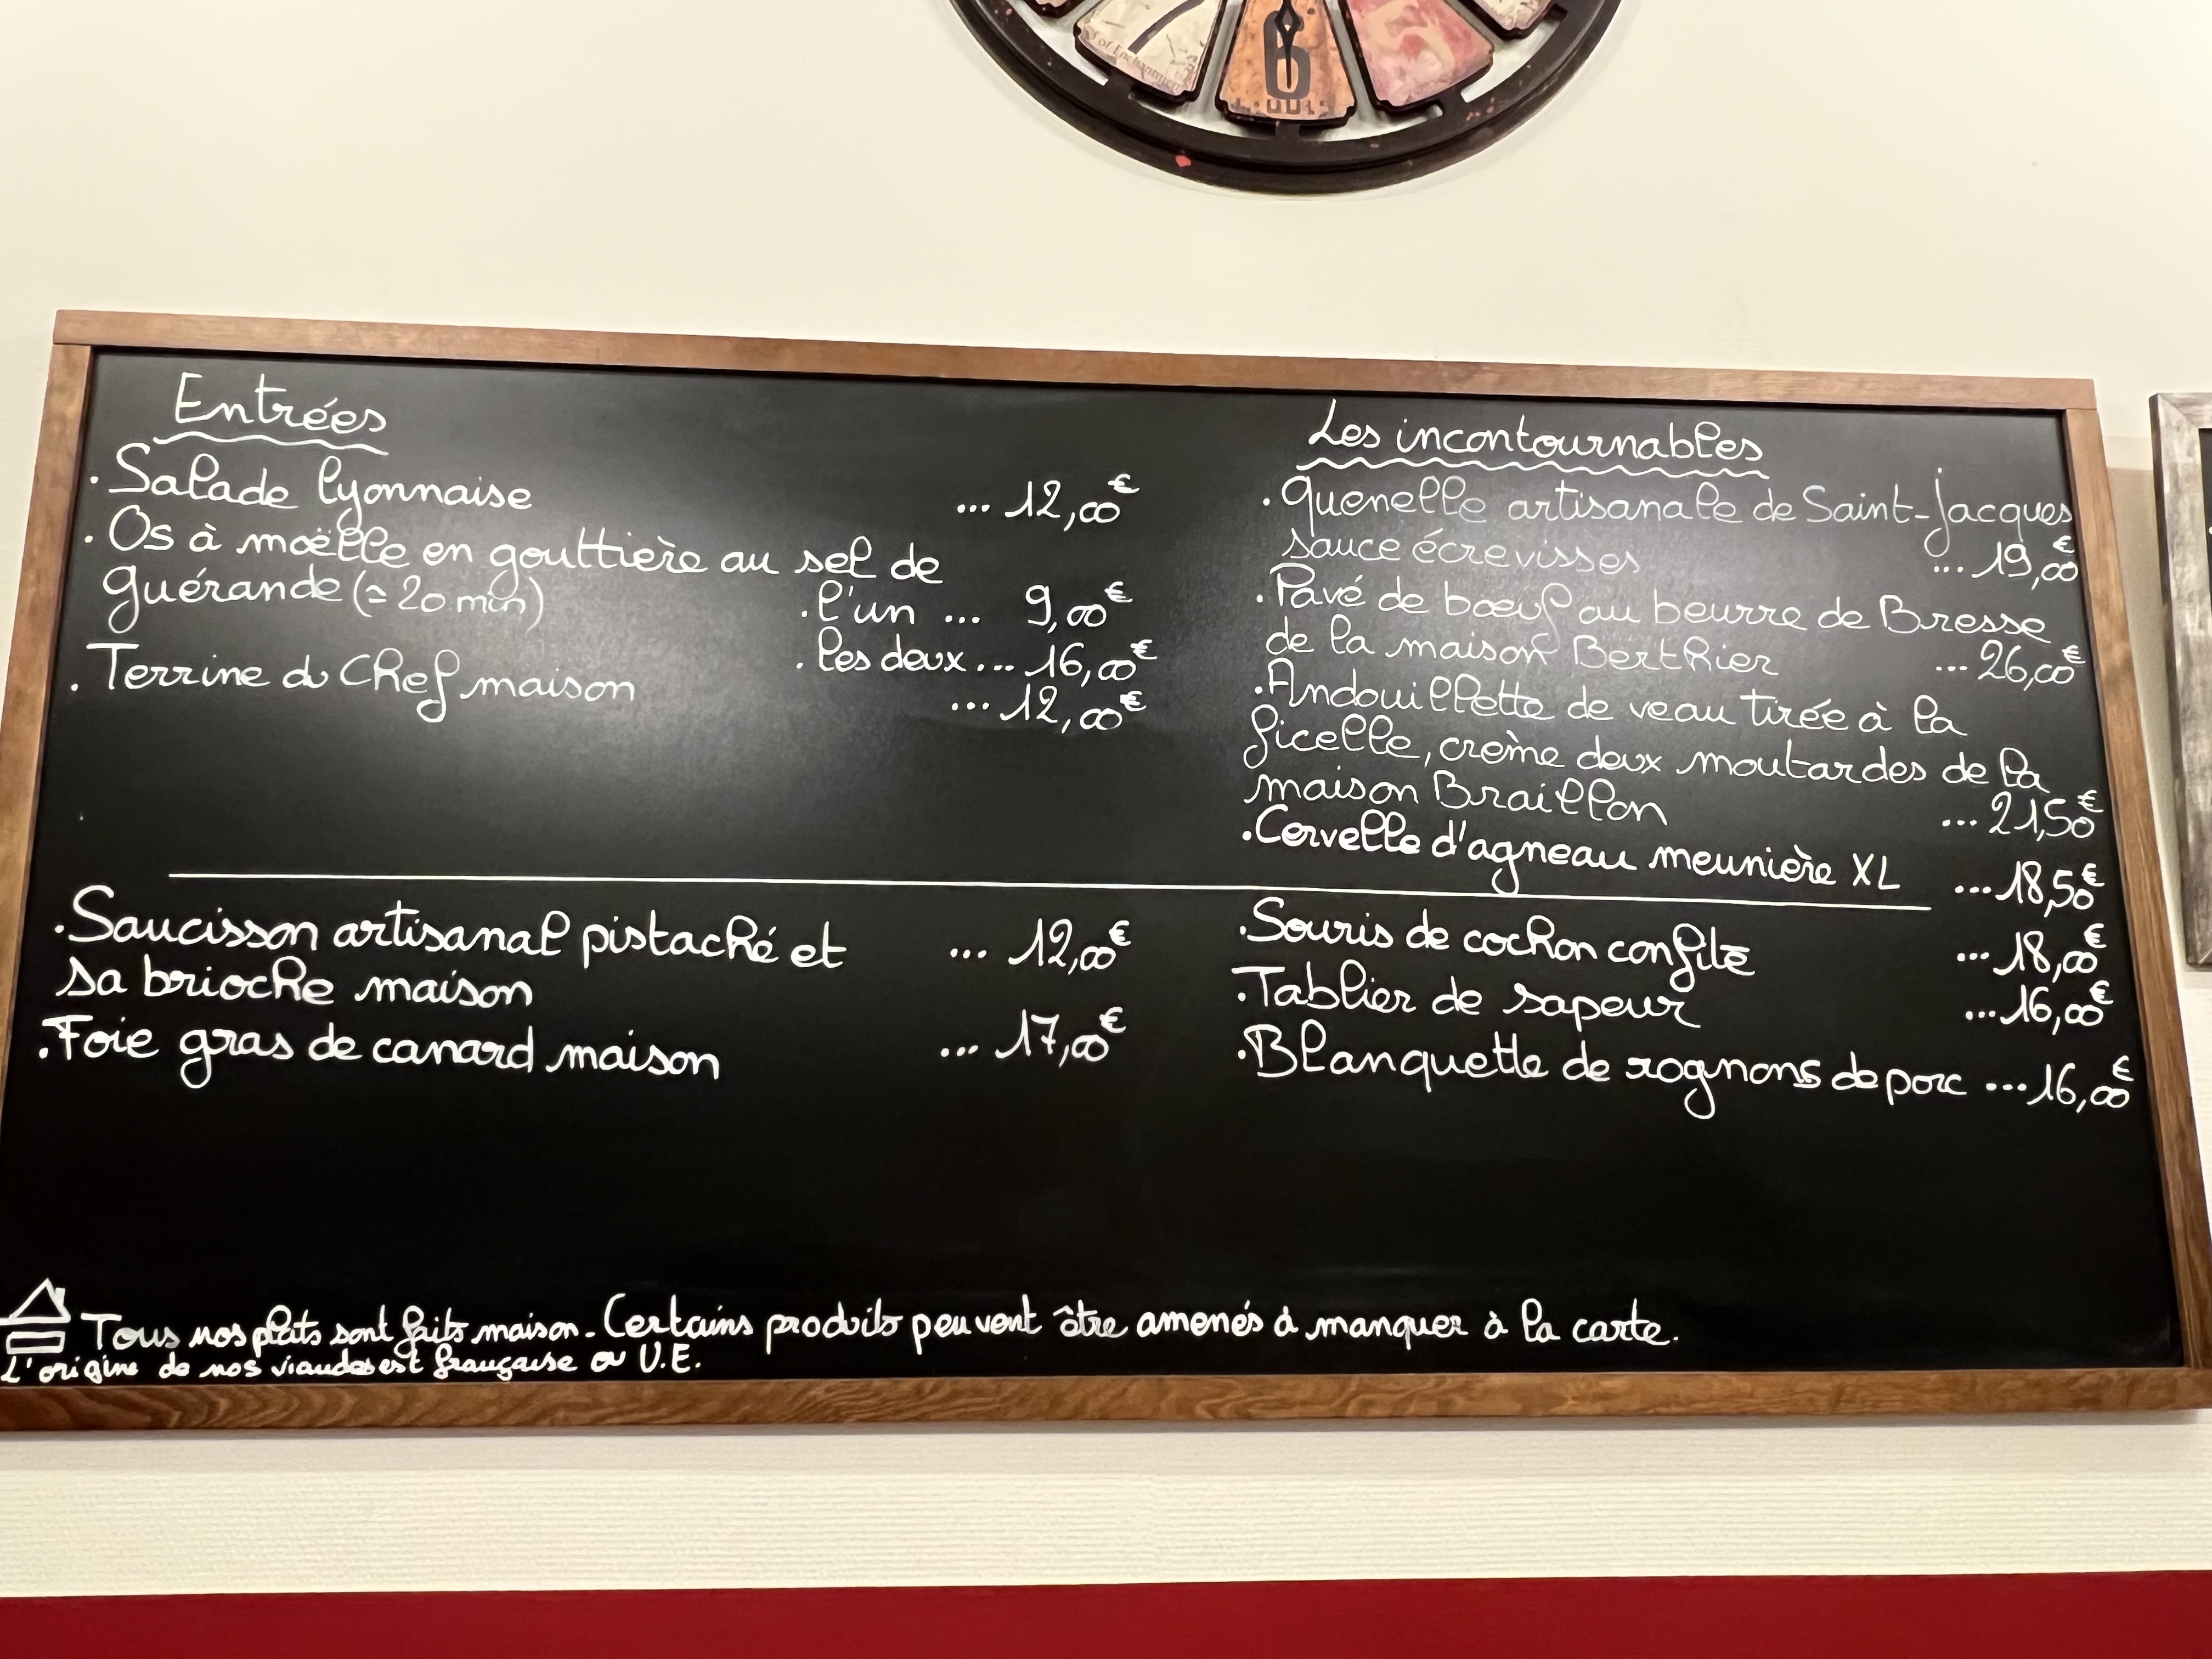 6
Entrées
. Salade lyonnaise ... 12,00€
. Os à moëlle en gouttière au sel de
guérande (≃ 20 min) . l'un ... 9,00€
. les deux ... 16,00€
. Terrine du Chef maison ... 12,00€
. Saucisson artisanal pistaché et ... 12,00€
sa brioche maison
. Foie gras de canard maison ... 17,00€
Les incontournables
. Quenelle artisanale de Saint-Jacques
sauce écrevisses ... 19,00€
. Pavé de bœuf au beurre de Bresse
de la maison Berthier ... 26,00€
. Andouillette de veau tirée à la
ficelle, crème deux moutardes de la
maison Braillon ... 21,50€
. Cervelle d'agneau meunière XL ... 18,50€
. Souris de cochon confite ... 18,00€
. Tablier de sapeur ... 16,00€
. Blanquette de rognons de porc ... 16,00€
Tous nos plats sont faits maison. Certains produits peuvent être amenés à manquer à la carte.
L'origine de nos viandes est française ou U.E.